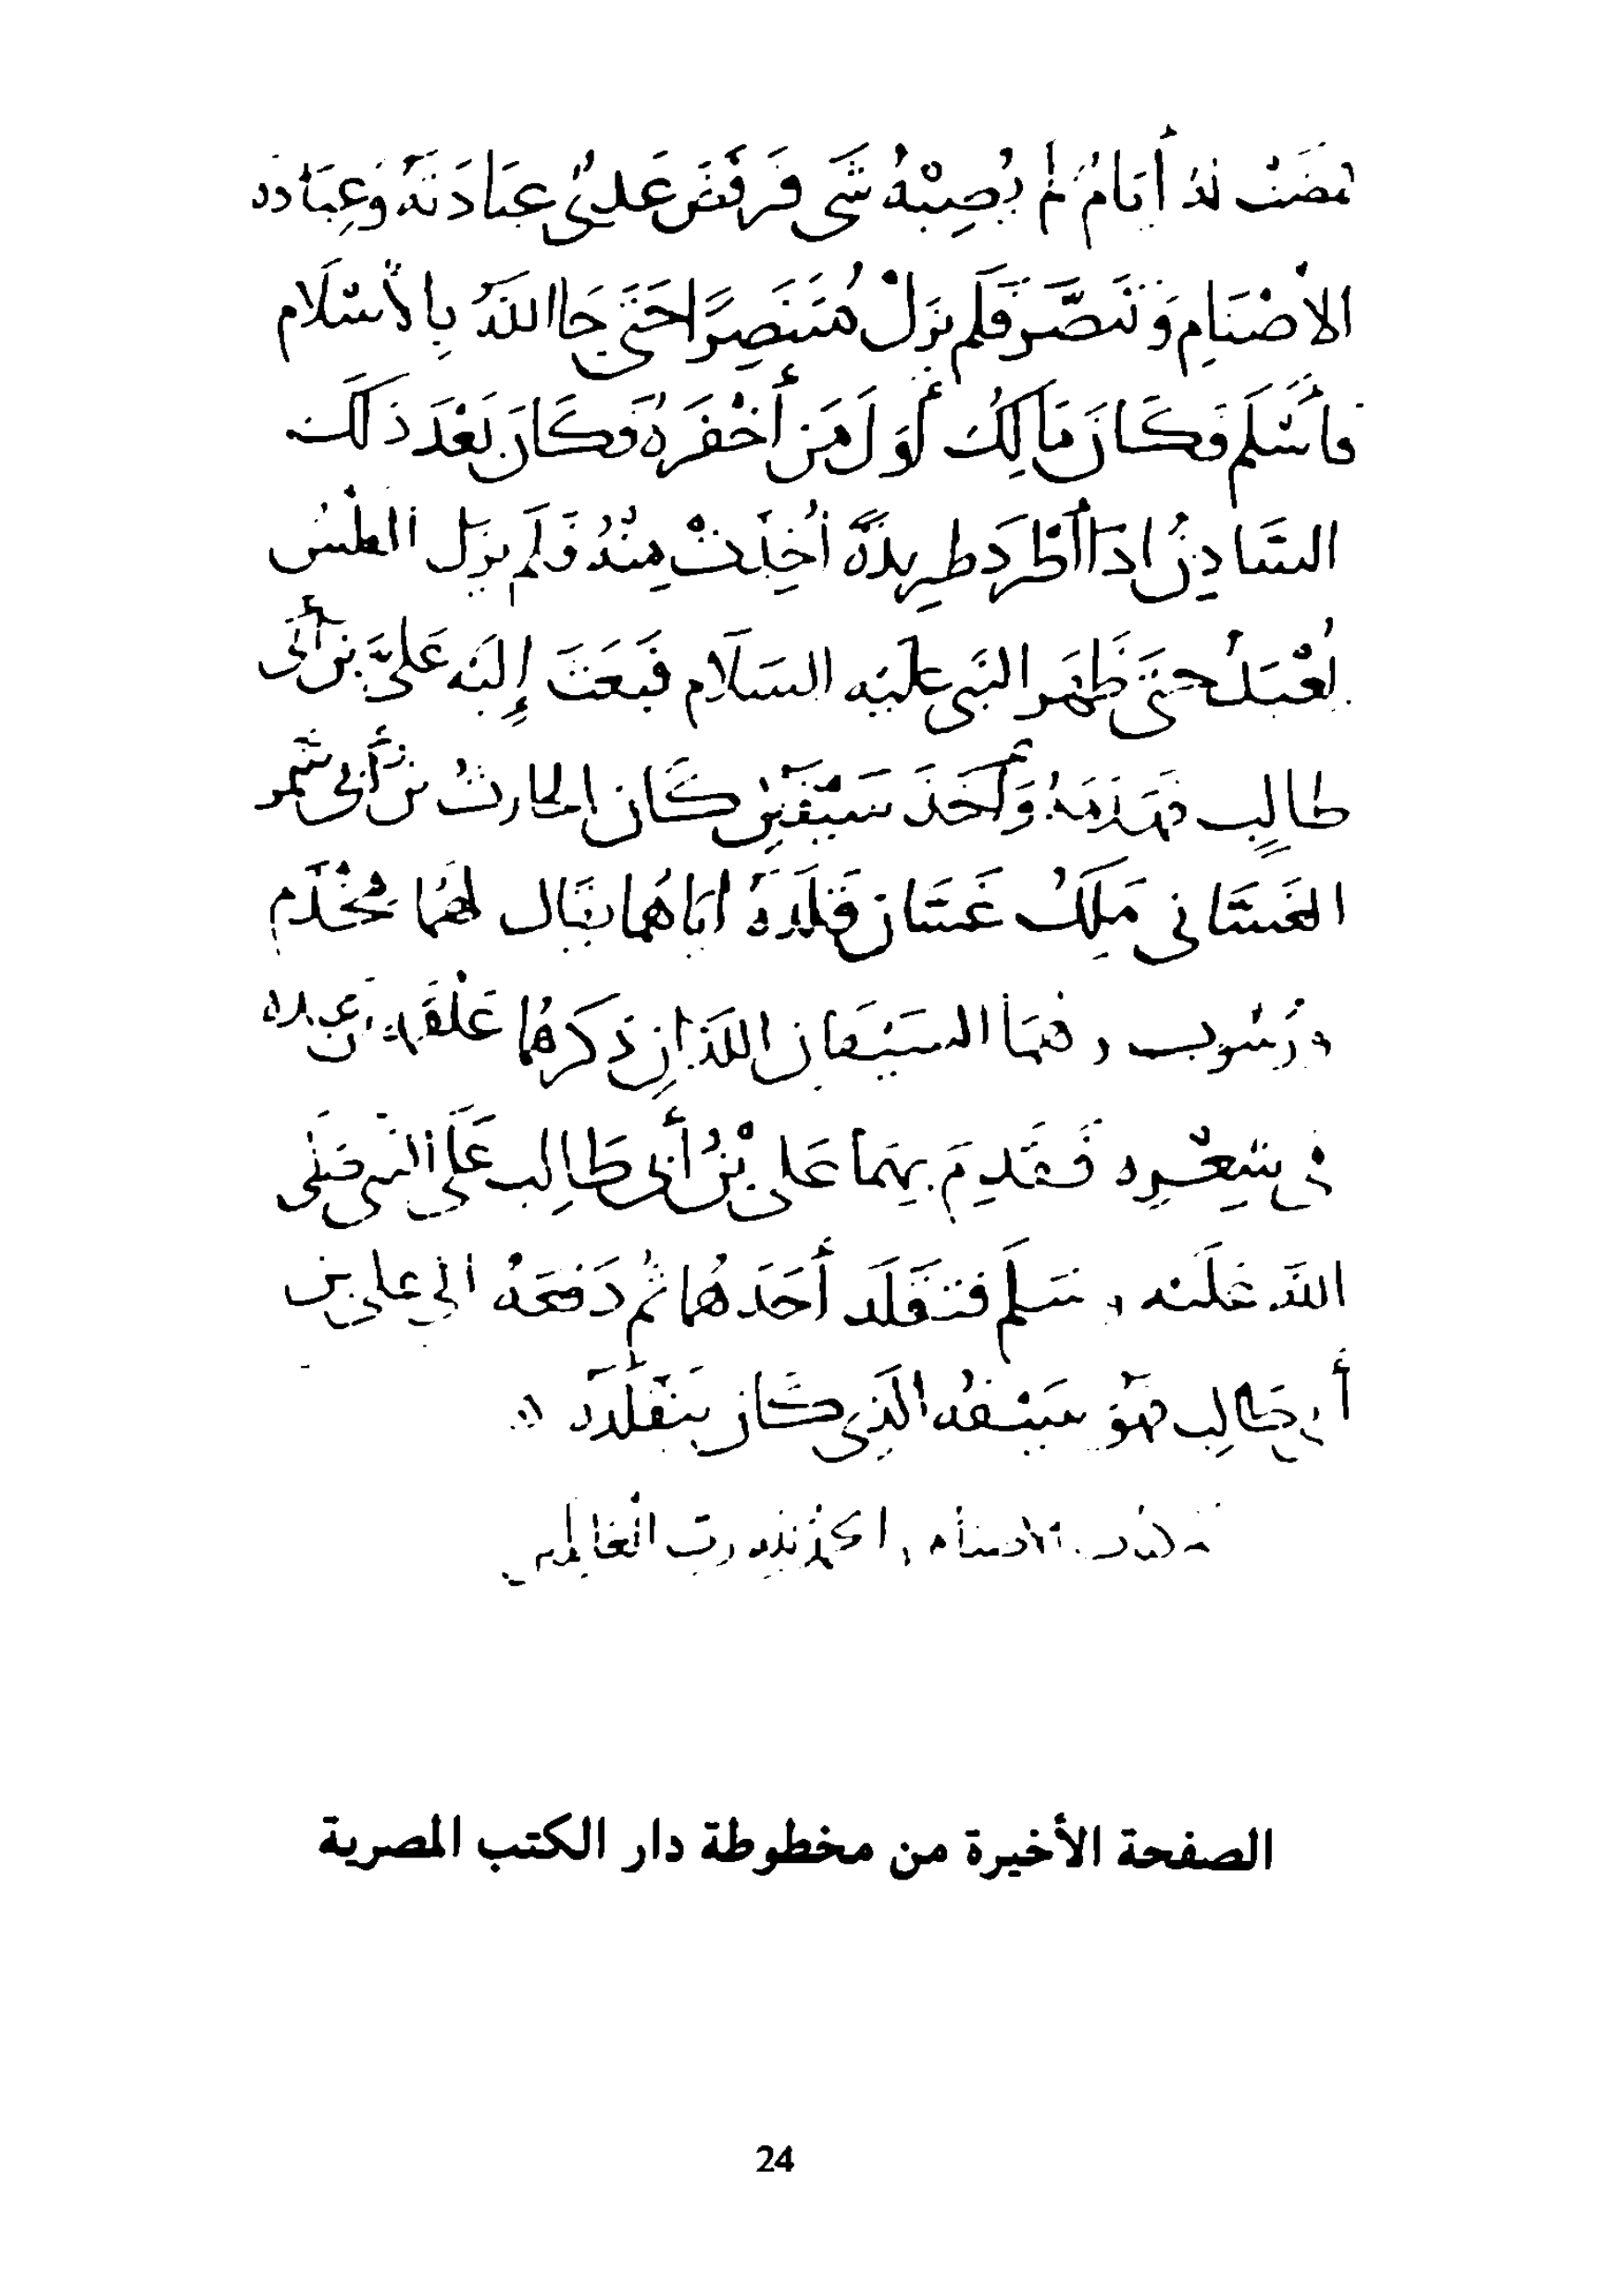 فمضت له أيامٌ لم يُصِبْهُ شَى فَرَفَضَ عَديٌّ عبَادَتَهُ وَعِبَادة
الأصْنَامِ وَتَنَصَّرَ فَلم يزَلْ مُتَنَصِرًا حَتَى جَا اللَّهُ بِالأسْلَام
فأسْلم فكَانَ مَالِكُ أوَلَ مَن أخْفَرَهُ فكَانَ بَعْدَ ذَلكَ
السَّادِنُ إذَا أطْرَدَ طرِيدَةً أُخِذَتْ مِنْهُ فَلَم يزَل الفلْسُ
يُعْبَدُ حتى ظَهَر النَبى عليْه السَلَام فَبَعَثَ إِليْه عَلىَّ بن أبى
طالِبٍ فهَدَمَهُ وَأخَذَ سَيْفَيْنِ كَان الحارثُ بنُ أبى شَمر
الغَسَّانى مَلِكُ غَسَّان قَلَّدَهُ اياهُما يقَال لهُمَا مِخْذَم
ورَسُوب وهُمَا السَيْفان اللَّذانِ ذكرهُما عَلْقَمةُ بن عبدة
فى شِعْرِه فَقَدِمَ بِهمَا عَلى بْنُ أبى طَالِب عَلَى النبى صَلى
اللَّه عَلَيْه وسَلم فتَقَلَّد أحَدَهُمَا ثُم دَفعَهُ الى على بن
أبى طالِب فهْوَ سَيْفُه الَّذِى كَان يَتَقَلَّدُه
الأصنام والحمْد لله ربّ العالمين
الصفحة الأخيرة من مخطوطة دار الكتب المصرية
24